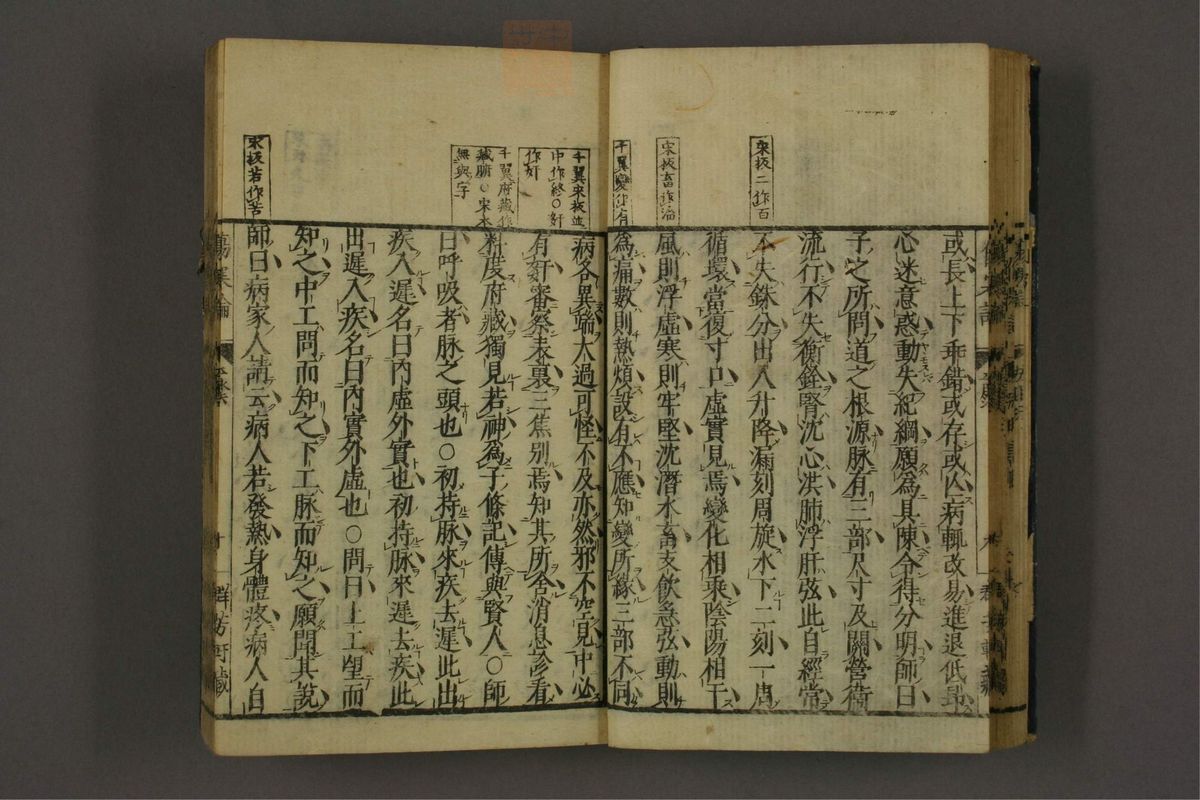 宋板二作百
宋板畜作治
千翼變作有
或長上下乖錯或存或亾病輒改易進退低昻
心迷意惑動失紀綱願爲具陳令得分明師曰
子之所問道之根源脉有三部尺寸及關營衛
流行不失衡銓腎沈心洪肺浮肝弦此自經常
不失銖分出入升降漏刻周旋水下二刻一周
循環當復寸口虛實見焉變化相乘陰陽相干
風則浮虛寒則牢堅沈潛水畜支飲急弦動則
爲痛數則熱煩設有不應知變所緣三部不同
千翼宋板並
中作終○奸
作奸
千翼府藏作
藏腑○宋本
無與字
宋板若作苦
病各異端太過可怪不及亦然邪不空見中必
有奸審察表裏三焦別焉知其所舍消息診看
料度府藏獨見若神爲子條記傳與賢人○師
曰呼吸者脉之頭也○初持脉來疾去遲此出
疾入遲名曰内虛外實也初持脉來遲去疾此
出遲入疾名曰内實外虛也○問曰上工望而
知之中工問而知之下工脉而知之願聞其說
師曰病家人請云病人若發熱身體疼病人自
傷寒論